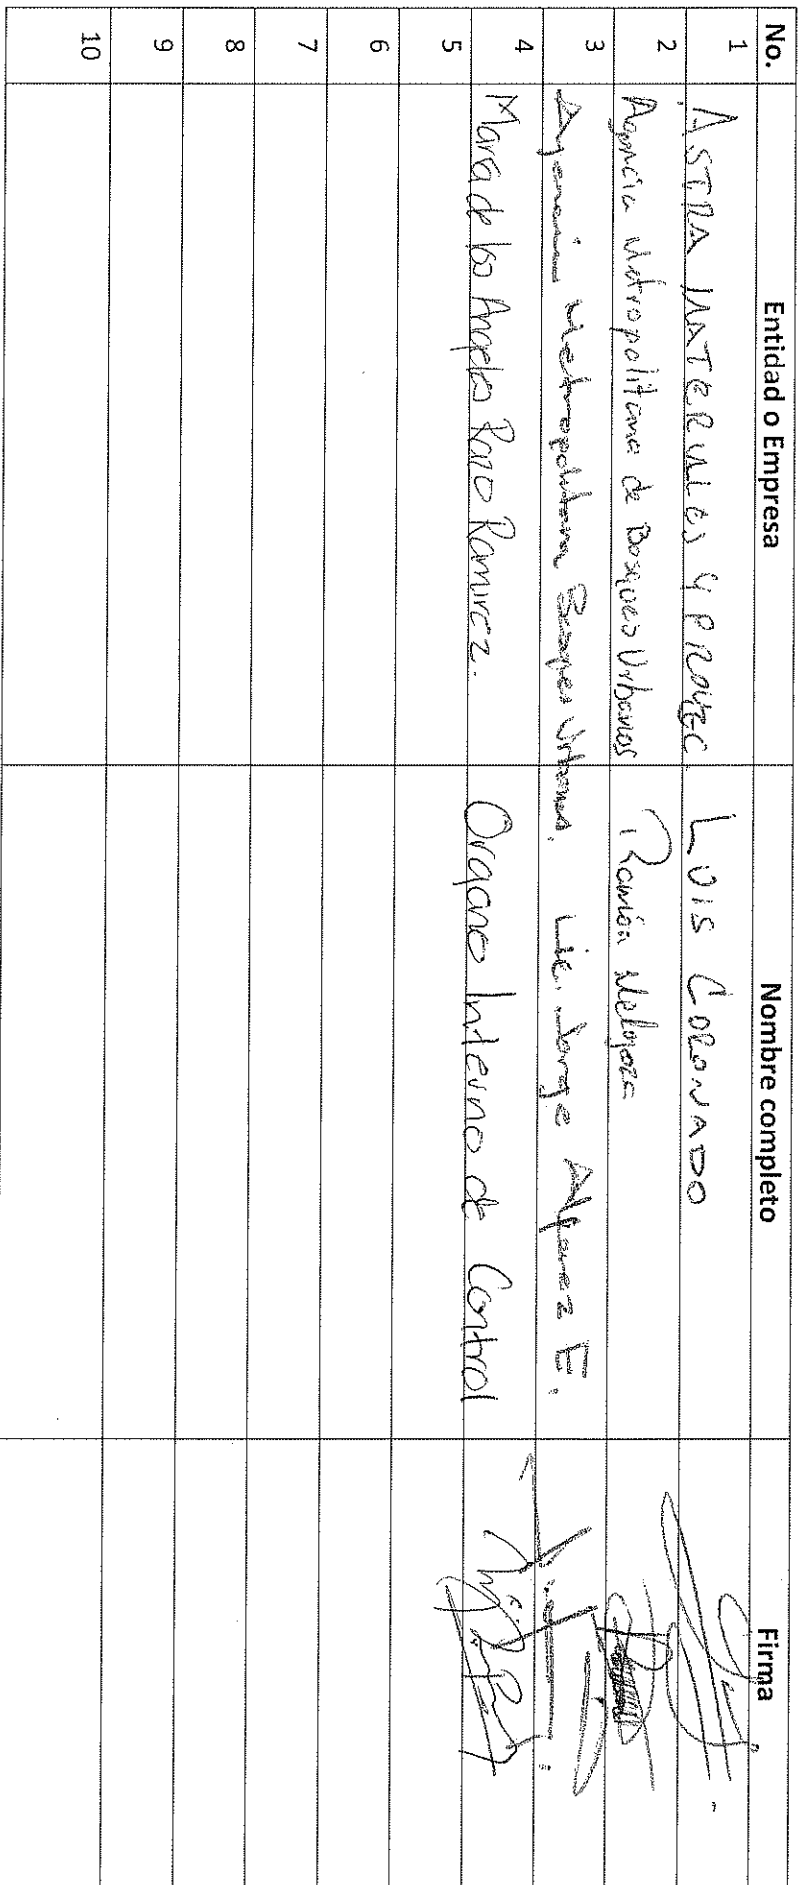 No. Entidad o Empresa Nombre completo Firma
1 ASTRA MATERIALES Y PROYEC. LUIS CORONADO
2 Agencia Metropolitana de Bosques Urbanos Ramón
3 Agencia Metropolitana Bosques Urbanos. Lic. Jorge Alfarez E.
4 Maria de los Angeles Rozo Ramirez. Organo Interno de Control
5
6
7
8
9
10